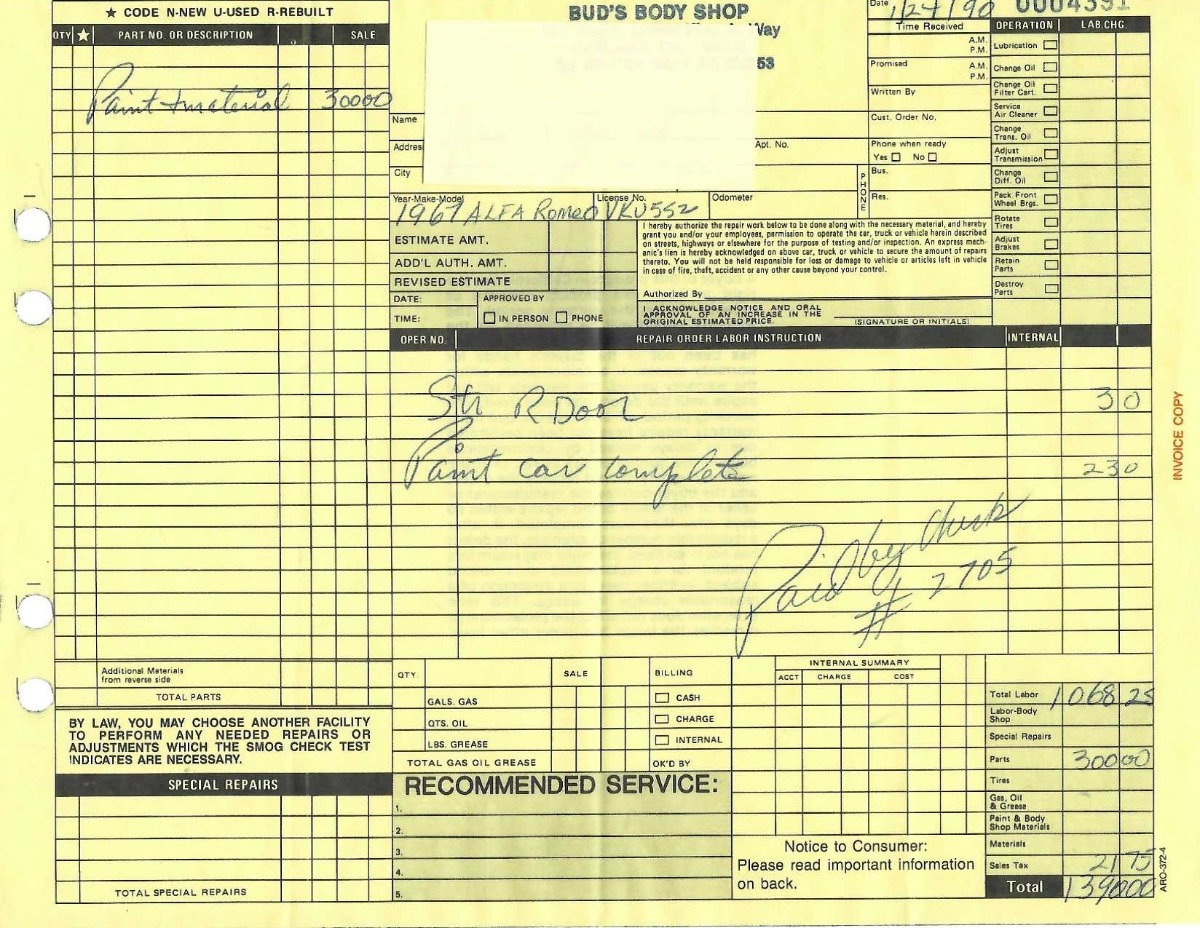 ★ CODE N-NEW U-USED R-REBUILT
QTY ★ PART NO. OR DESCRIPTION SALE
Paint + material 300 00
BUD'S BODY SHOP
Way
53
Name
Address
City
Apt. No.
Date 1/24/90 0004391
Time Received
A.M.
P.M.
Promised A.M.
P.M.
Written By
Cust. Order No.
Phone when ready
Yes □ No □
PHONE
Bus.
Res.
OPERATION LAB.CHG.
Lubrication
Change Oil
Change Oil
Filter Cart.
Service
Air Cleaner
Change
Trans. Oil
Adjust
Transmission
Change
Diff. Oil
Pack Front
Wheel Brgs.
Rotate
Tires
Adjust
Brakes
Retain
Parts
Destroy
Parts
Year-Make-Model License No. Odometer
1967 ALFA Romeo VKU552
ESTIMATE AMT.
ADD'L AUTH. AMT.
REVISED ESTIMATE
DATE: APPROVED BY
TIME: □ IN PERSON □ PHONE
I hereby authorize the repair work below to be done along with the necessary material, and hereby
grant you and/or your employees, permission to operate the car, truck or vehicle herein described
on streets, highways or elsewhere for the purpose of testing and/or inspection. An express mech-
anic's lien is hereby acknowledged on above car, truck or vehicle to secure the amount of repairs
thereto. You will not be held responsible for loss or damage to vehicle or articles left in vehicle
in case of fire, theft, accident or any other cause beyond your control.
Authorized By
I ACKNOWLEDGE NOTICE AND ORAL
APPROVAL OF AN INCREASE IN THE
ORIGINAL ESTIMATED PRICE.
(SIGNATURE OR INITIALS)
OPER NO. REPAIR ORDER LABOR INSTRUCTION INTERNAL
Str R Door 30
Paint car complete 230
Paid by Check
# 2705
INVOICE COPY
Additional Materials
from reverse side
TOTAL PARTS
BY LAW, YOU MAY CHOOSE ANOTHER FACILITY
TO PERFORM ANY NEEDED REPAIRS OR
ADJUSTMENTS WHICH THE SMOG CHECK TEST
INDICATES ARE NECESSARY.
SPECIAL REPAIRS
TOTAL SPECIAL REPAIRS
QTY. SALE BILLING
GALS. GAS □ CASH
QTS. OIL □ CHARGE
LBS. GREASE □ INTERNAL
TOTAL GAS OIL GREASE OK'D BY
RECOMMENDED SERVICE:
1.
2.
3.
4.
5.
INTERNAL SUMMARY
ACCT CHARGE COST
Notice to Consumer:
Please read important information
on back.
Total Labor 1068 25
Labor-Body
Shop
Special Repairs
Parts 300 00
Tires
Gas, Oil
& Grease
Paint & Body
Shop Materials
Materials
Sales Tax 21 75
Total 1390 00
ARO-372-4